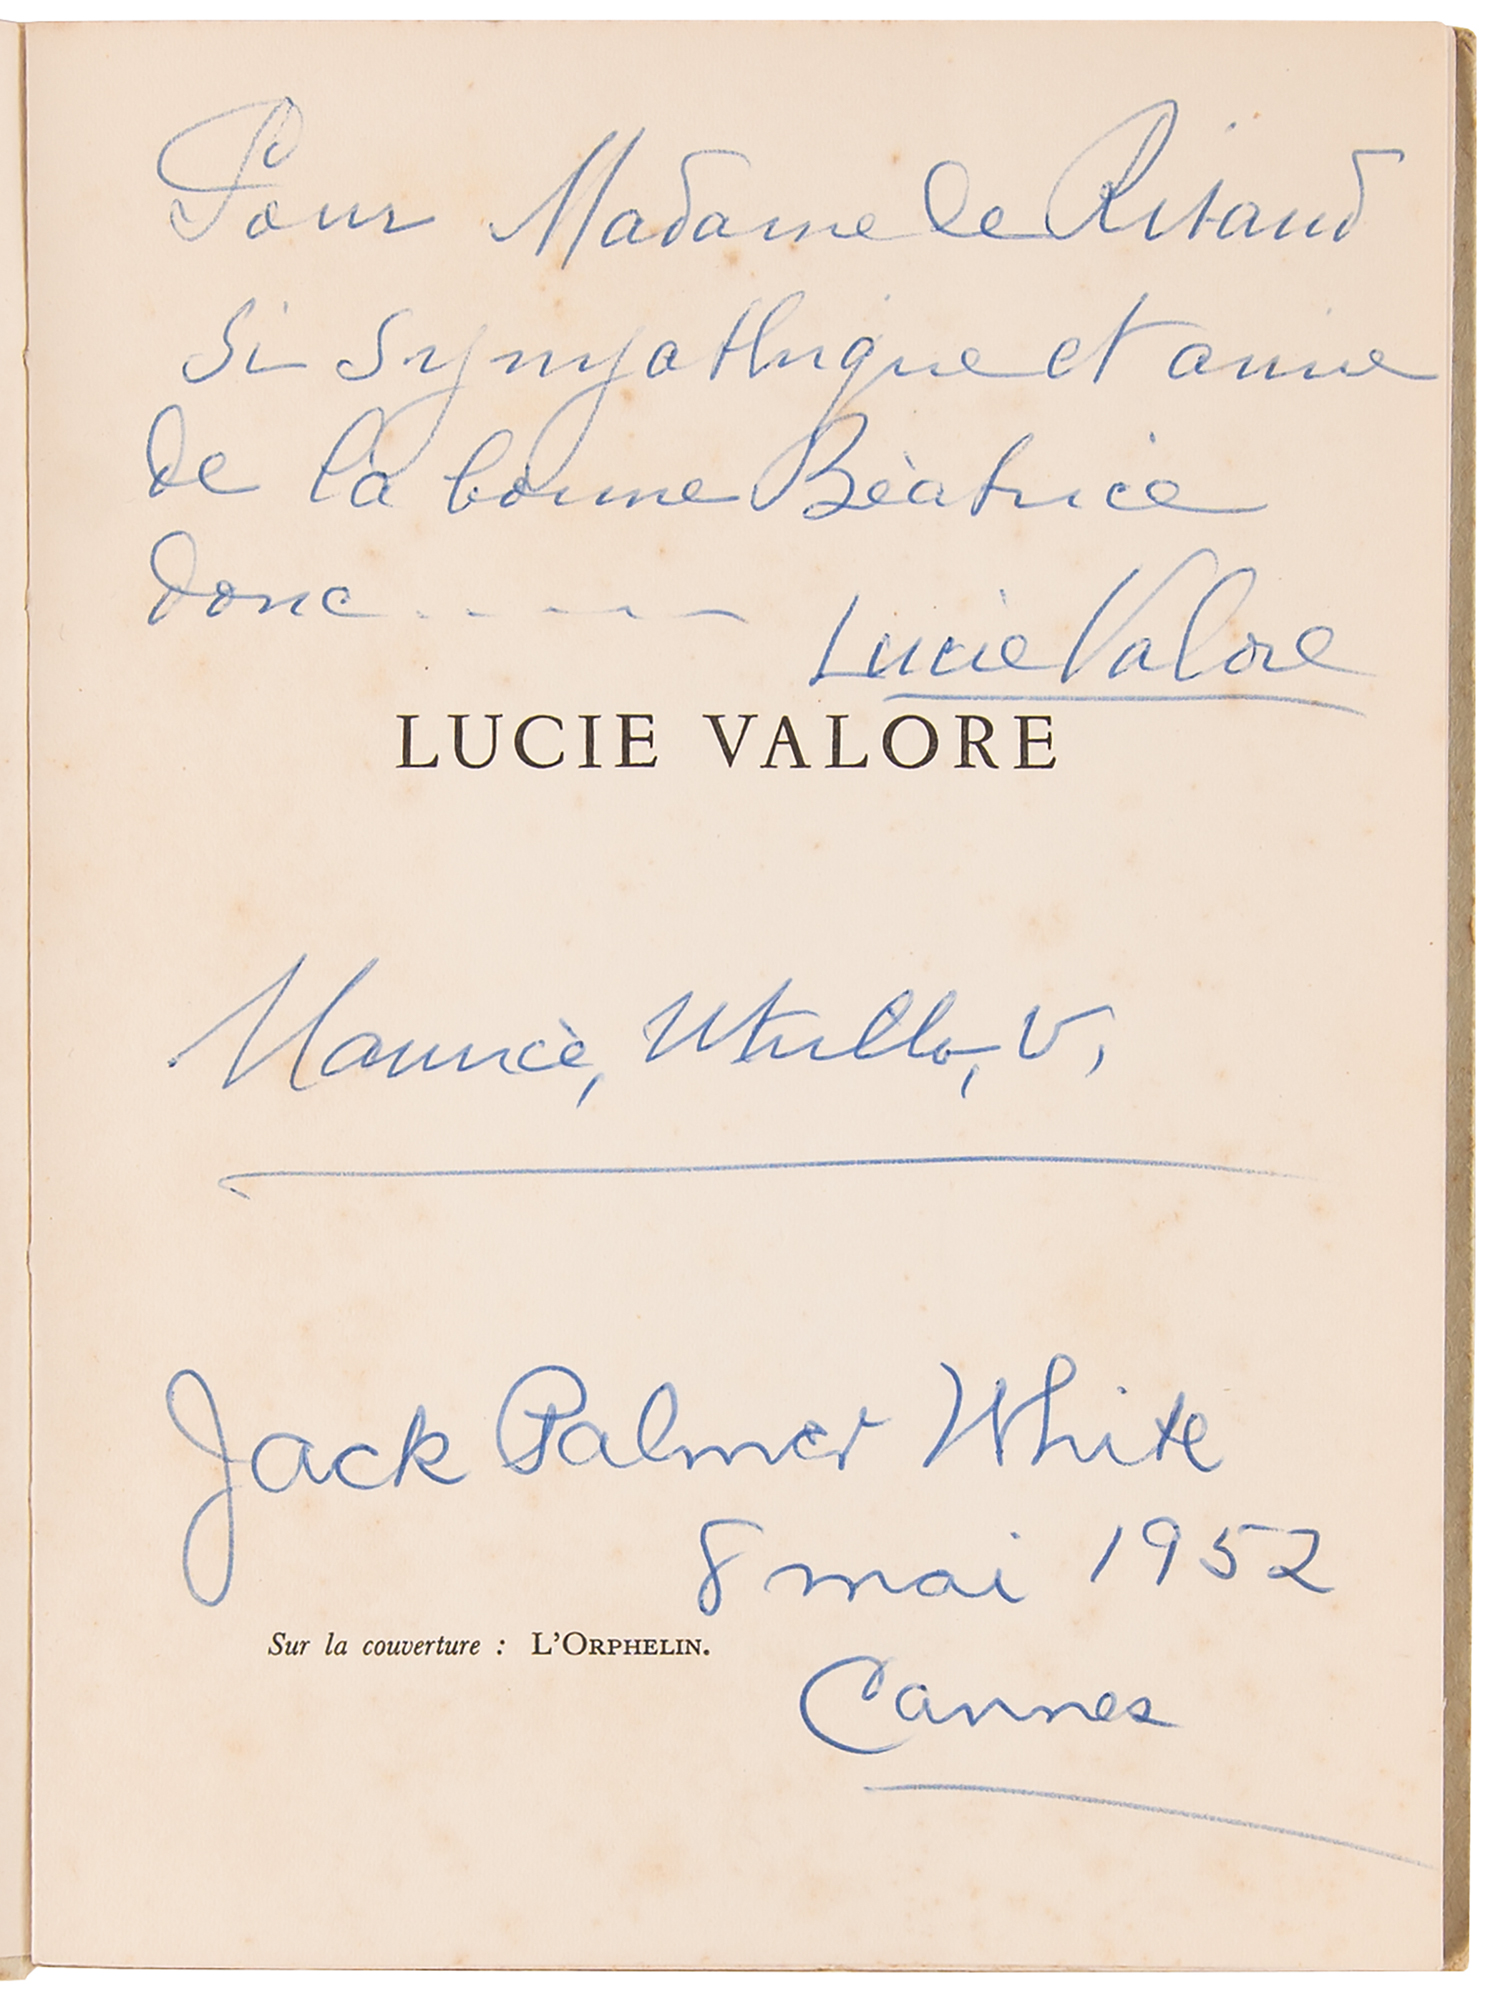 Pour Madame de Ritaud
si sympathique et amie
de la bonne Bèatrice
donc . - - - -
Lucie Valore
LUCIE VALORE
Mauricè, Utrillo, V,
Jack Palmer White
8 mai 1952
Sur la couverture : L'ORPHELIN.
Cannes